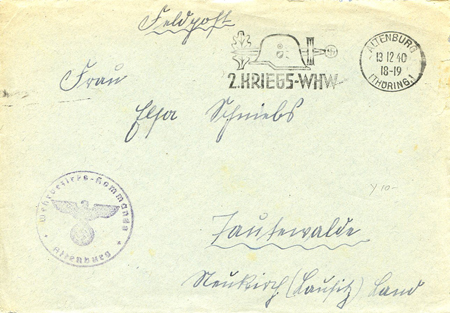 Feldpost
ALTENBURG
13 12 40
18-19
(THÜRING.)
2. KRIEGS-WHW
Frau
Elsa Schniebs
Wehrbezirks-Kommando
Altenburg
Tautewalde
Neukirch (Lausitz) Land